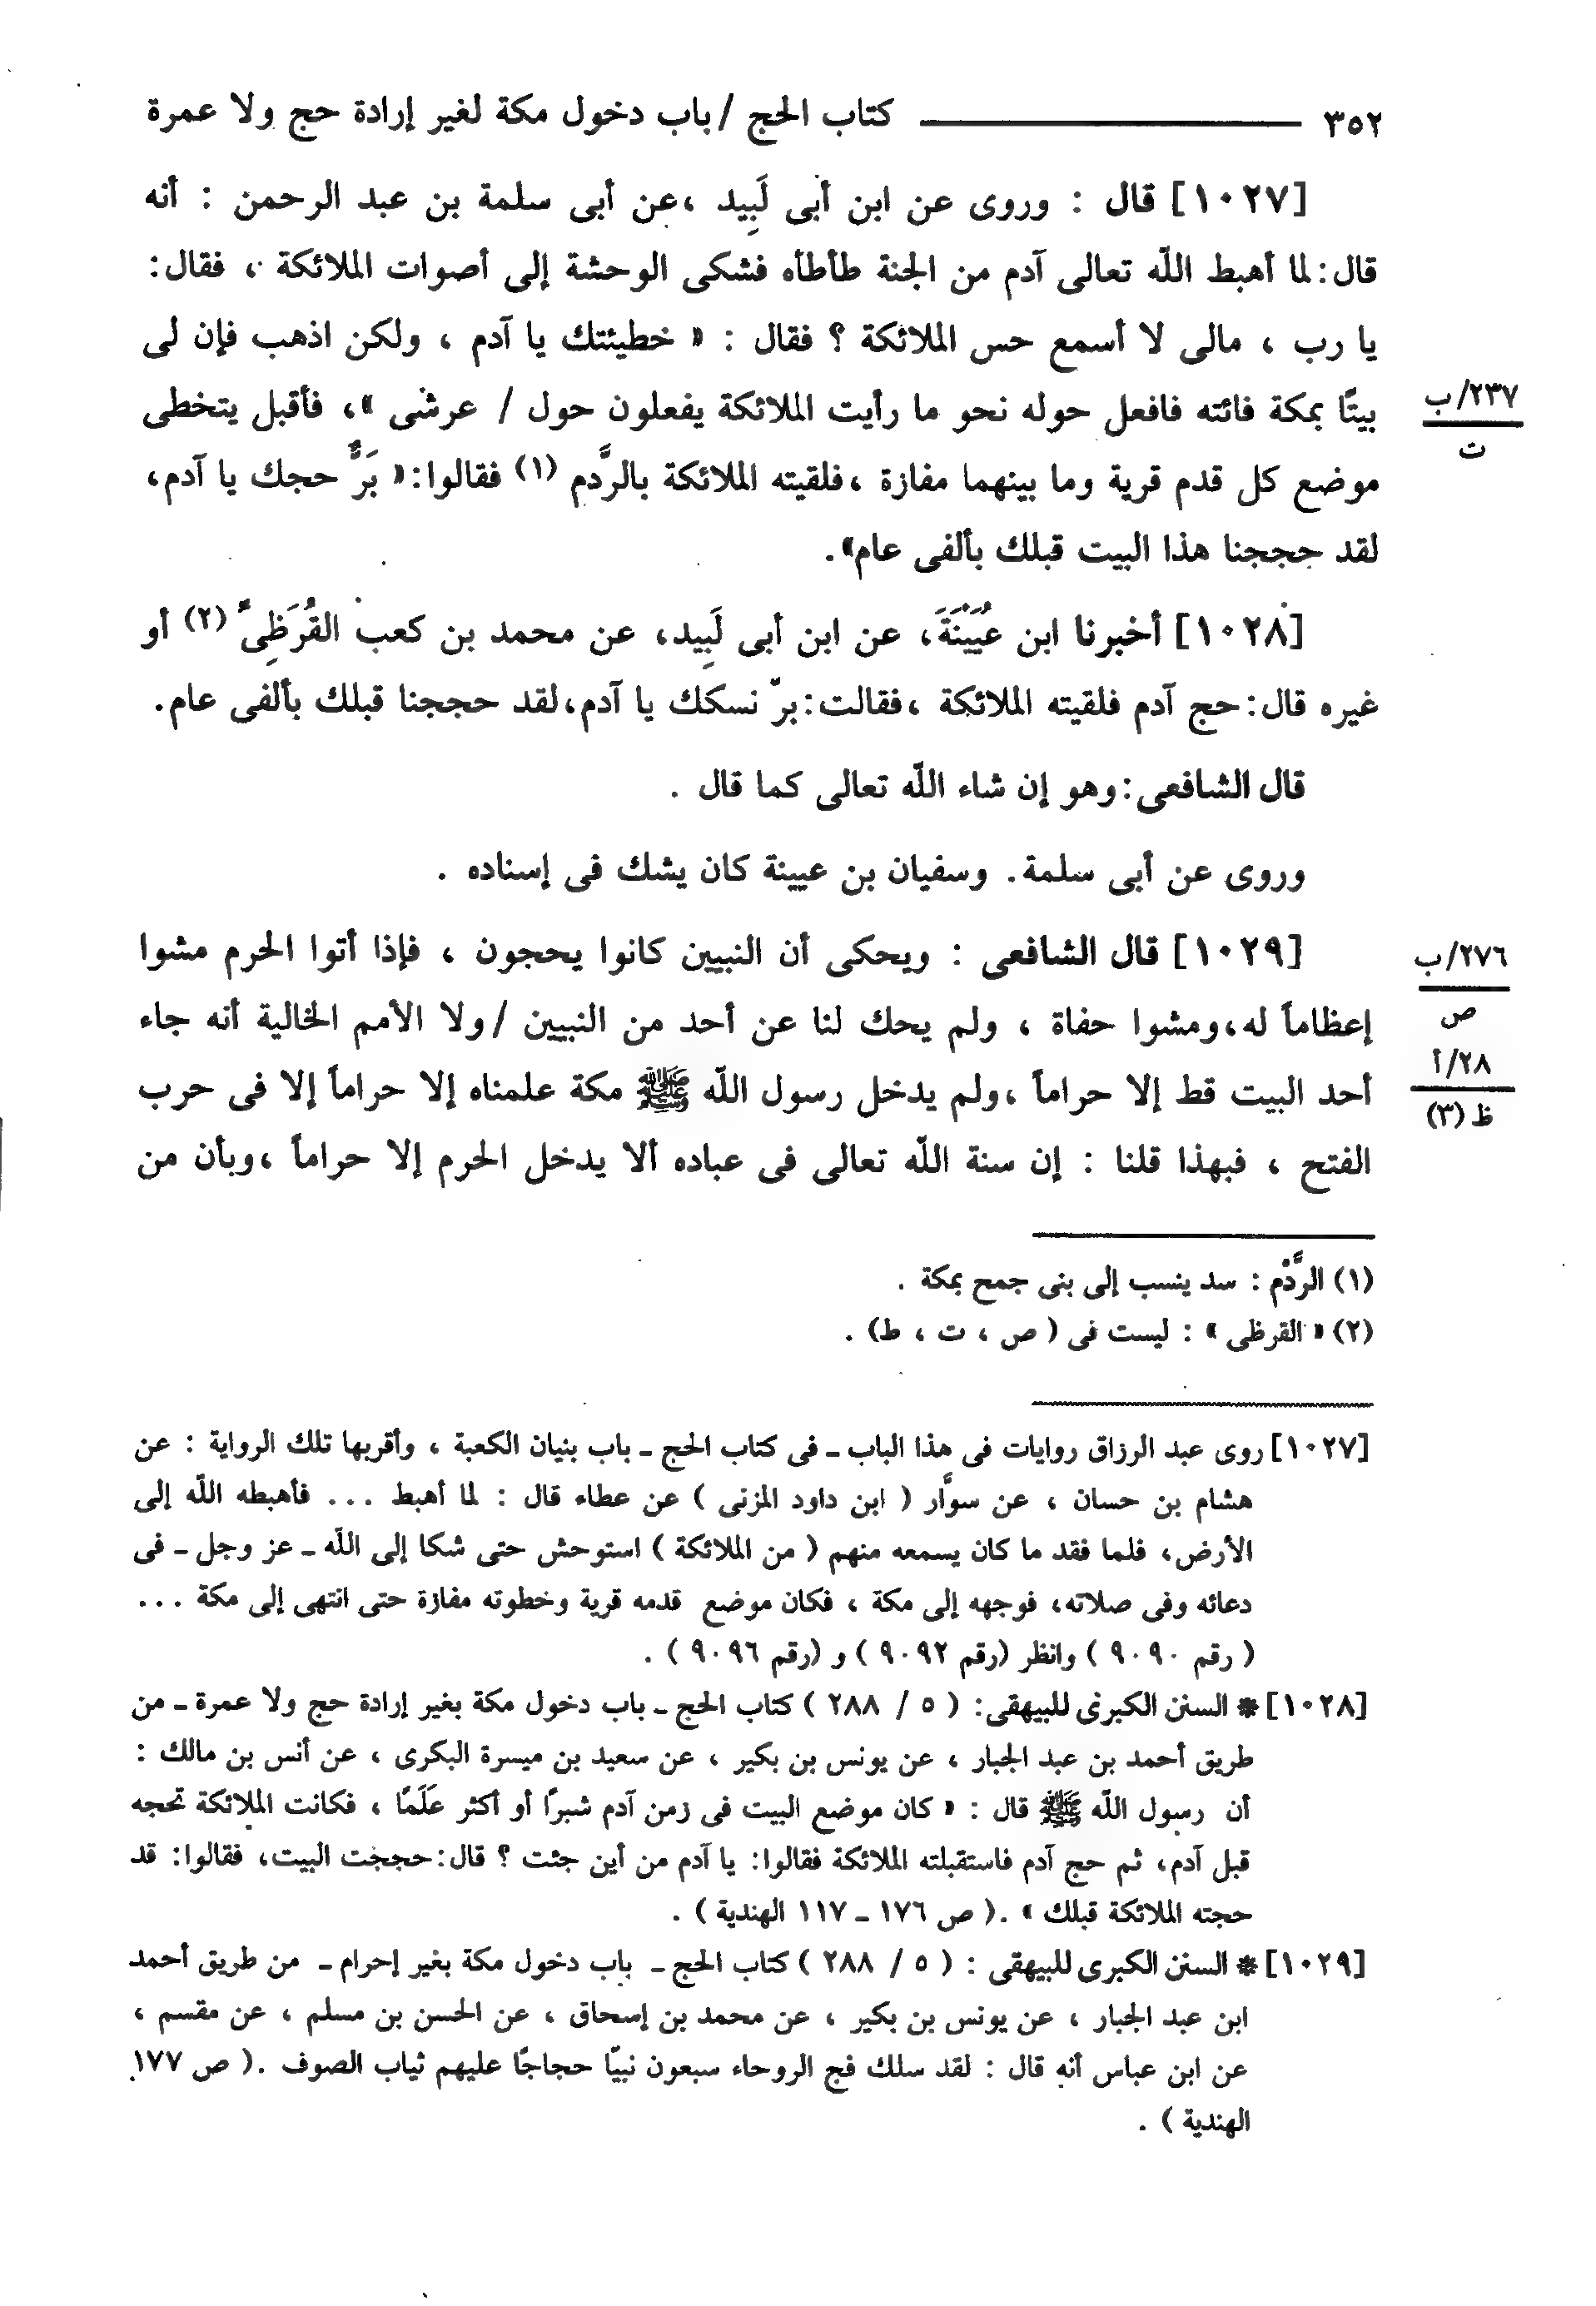 ٣٥٢ ــــــــــــ كتاب الحج / باب دخول مكة لغير إرادة حج ولا عمرة
[١٠٢٧] قال : وروى عن ابن أبى لَبِيد ،عن أبى سلمة بن عبد الرحمن : أنه
قال:لما أهبط اللّه تعالى آدم من الجنة طأطأه فشكى الوحشة إلى أصوات الملائكة ، فقال:
يا رب ، مالى لا أسمع حس الملائكة ؟ فقال : « خطيئتك يا آدم ، ولكن اذهب فإن لى
بيتًا بمكة فائته فافعل حوله نحو ما رأيت الملائكة يفعلون حول / عرشى »، فأقبل يتخطى
٢٣٧/ب
ت
موضع كل قدم قرية وما بينهما مفازة ،فلقيته الملائكة بالرَّدم (١) فقالوا:« بَرَّ حجك يا آدم،
لقد حججنا هذا البيت قبلك بألفى عام».
[١٠٢٨] أخبرنا ابن عُيَيْنَةَ، عن ابن أبى لَبِيد، عن محمد بن كعب القُرَظِىّ (٢) أو
غيره قال:حج آدم فلقيته الملائكة ،فقالت:برّ نسكك يا آدم،لقد حججنا قبلك بألفى عام.
قال الشافعى:وهو إن شاء اللّه تعالى كما قال .
وروى عن أبى سلمة. وسفيان بن عيينة كان يشك فى إسناده .
[١٠٢٩] قال الشافعى : ويحكى أن النبيين كانوا يحجون ، فإذا أتوا الحرم مشوا
٢٧٦/ب
ص
إعظاماً له،ومشوا حفاة ، ولم يحك لنا عن أحد من النبيين /ولا الأمم الخالية أنه جاء
٢٨/أ
ظ (٣)
أحد البيت قط إلا حراماً ،ولم يدخل رسول اللّه ﷺ مكة علمناه إلا حراماً إلا فى حرب
الفتح ، فبهذا قلنا : إن سنة اللّه تعالى فى عباده ألا يدخل الحرم إلا حراماً ،وبأن من
(١) الرَّدْم : سد ينسب إلى بنى جمح بمكة .
(٢) « القرظى » : ليست فى ( ص ، ت ، ط) .
[١٠٢٧] روى عبد الرزاق روايات فى هذا الباب ـ فى كتاب الحج ـ باب بنيان الكعبة ، وأقربها تلك الرواية : عن
هشام بن حسان ، عن سوَّار ( ابن داود المزنى ) عن عطاء قال : لما أهبط ... فأهبطه اللّه إلى
الأرض، فلما فقد ما كان يسمعه منهم ( من الملائكة ) استوحش حتى شكا إلى اللّه ـ عز وجل ـ فى
دعائه وفى صلاته، فوجهه إلى مكة ، فكان موضع قدمه قرية وخطوته مفازة حتى انتهى إلى مكة ...
( رقم ٩٠٩٠ ) وانظر (رقم ٩٠٩٢ ) و (رقم ٩٠٩٦ ) .
[١٠٢٨] * السنن الكبرى للبيهقى: ( ٥ / ٢٨٨ ) كتاب الحج ـ باب دخول مكة بغير إرادة حج ولا عمرة ـ من
طريق أحمد بن عبد الجبار ، عن يونس بن بكير ، عن سعيد بن ميسرة البكرى ، عن أنس بن مالك :
أن رسول اللّه ﷺ قال : « كان موضع البيت فى زمن آدم شبرًا أو أكثر عَلَمًا ، فكانت الملائكة تحجه
قبل آدم، ثم حج آدم فاستقبلته الملائكة فقالوا: يا آدم من أين جئت ؟ قال:حججت البيت، فقالوا: قد
حجته الملائكة قبلك » .( ص ١٧٦ ـ ١١٧ الهندية ) .
[١٠٢٩] * السنن الكبرى للبيهقى : ( ٥ / ٢٨٨ ) كتاب الحج ـ باب دخول مكة بغير إحرام ـ من طريق أحمد
ابن عبد الجبار ، عن يونس بن بكير ، عن محمد بن إسحاق ، عن الحسن بن مسلم ، عن مقسم ،
عن ابن عباس أنه قال : لقد سلك فج الروحاء سبعون نبيّا حجاجًا عليهم ثياب الصوف .( ص ١٧٧
الهندية ) .